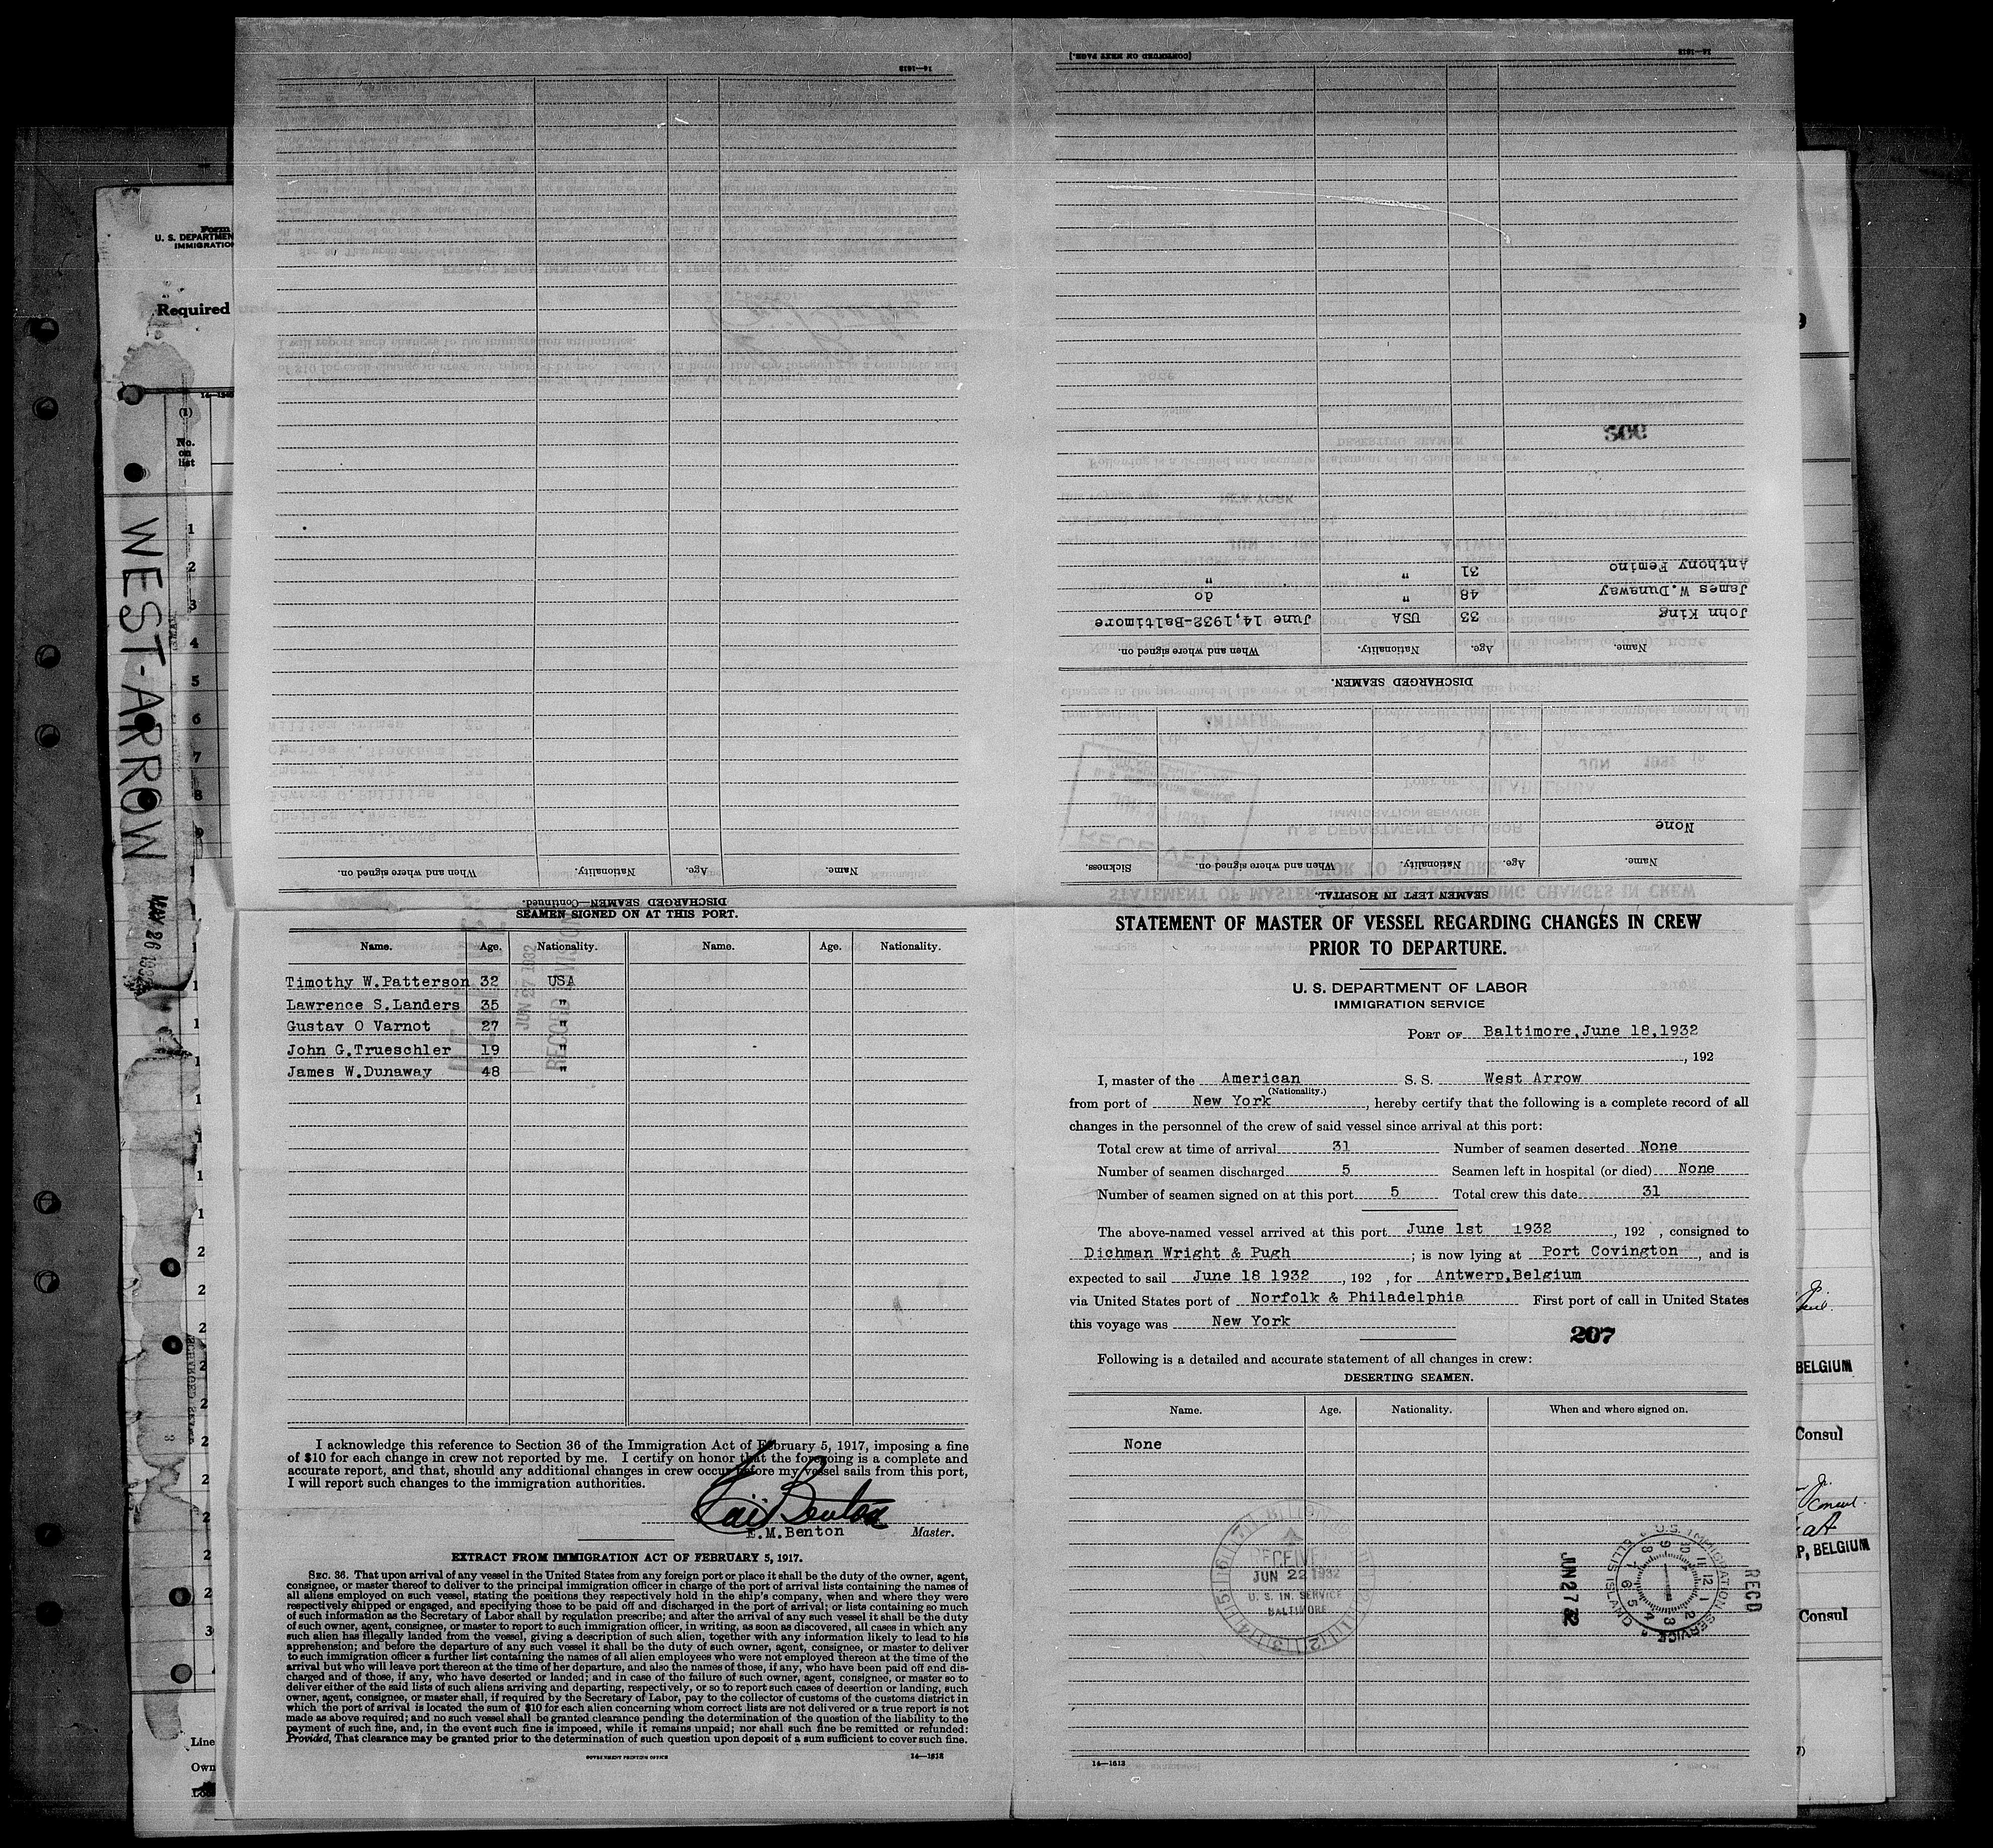 WEST-ARROW
MAY 26 1932
Form
U. S. DEPARTMEN
IMMIGRATIO
Required
(1)
No.
on
list
1
2
3
4
5
6
7
8
9
Line
Own
14—1613
Name.
Age.
Nationality.
When and where signed on.
DISCHARGED SEAMEN—Continued.
[CONTINUED ON NEXT PAGE.]
14—1613
Anthony Femino 31 " "
James W.Dunaway 48 " do
John King 33 USA June 14,1932-Baltimore
Name. Age. Nationality. When and where signed on.
DISCHARGED SEAMEN.
None
Name. Age. Nationality. When and where signed on. Sickness.
SEAMEN LEFT IN HOSPITAL.
SEAMEN SIGNED ON AT THIS PORT.
Name. Age. Nationality. Name. Age. Nationality.
Timothy W.Patterson 32 USA
Lawrence S.Landers 35 "
Gustav O Varnot 27 "
John G.Trueschler 19 "
James W.Dunaway 48 "
JUN 27 1932
I acknowledge this reference to Section 36 of the Immigration Act of February 5, 1917, imposing a fine
of $10 for each change in crew not reported by me. I certify on honor that the foregoing is a complete and
accurate report, and that, should any additional changes in crew occur before my vessel sails from this port,
I will report such changes to the immigration authorities.
E.M.Benton Master.
EXTRACT FROM IMMIGRATION ACT OF FEBRUARY 5, 1917.
SEC. 36. That upon arrival of any vessel in the United States from any foreign port or place it shall be the duty of the owner, agent,
consignee, or master thereof to deliver to the principal immigration officer in charge of the port of arrival lists containing the names of
all aliens employed on such vessel, stating the positions they respectively hold in the ship's company, when and where they were
respectively shipped or engaged, and specifying those to be paid off and discharged in the port of arrival; or lists containing so much
of such information as the Secretary of Labor shall by regulation prescribe; and after the arrival of any such vessel it shall be the duty
of such owner, agent, consignee, or master to report to such immigration officer, in writing, as soon as discovered, all cases in which any
such alien has illegally landed from the vessel, giving a description of such alien, together with any information likely to lead to his
apprehension; and before the departure of any such vessel it shall be the duty of such owner, agent, consignee, or master to deliver
to such immigration officer a further list containing the names of all alien employees who were not employed thereon at the time of the
arrival but who will leave port thereon at the time of her departure, and also the names of those, if any, who have been paid off and dis-
charged and of those, if any, who have deserted or landed; and in case of the failure of such owner, agent, consignee, or master so to
deliver either of the said lists of such aliens arriving and departing, respectively, or so to report such cases of desertion or landing, such
owner, agent, consignee, or master shall, if required by the Secretary of Labor, pay to the collector of customs of the customs district in
which the port of arrival is located the sum of $10 for each alien concerning whom correct lists are not delivered or a true report is not
made as above required; and no such vessel shall be granted clearance pending the determination of the question of the liability to the
payment of such fine, and, in the event such fine is imposed, while it remains unpaid; nor shall such fine be remitted or refunded:
Provided, That clearance may be granted prior to the determination of such question upon deposit of a sum sufficient to cover such fine.
GOVERNMENT PRINTING OFFICE 14—1613
STATEMENT OF MASTER OF VESSEL REGARDING CHANGES IN CREW
PRIOR TO DEPARTURE.
U. S. DEPARTMENT OF LABOR
IMMIGRATION SERVICE
PORT OF Baltimore,June 18,1932
, 192
I, master of the American S. S. West Arrow
(Nationality.)
from port of New York, hereby certify that the following is a complete record of all
changes in the personnel of the crew of said vessel since arrival at this port:
Total crew at time of arrival 31 Number of seamen deserted None
Number of seamen discharged 5 Seamen left in hospital (or died) None
Number of seamen signed on at this port 5 Total crew this date 31
The above-named vessel arrived at this port June 1st 1932, 192 , consigned to
Dichman Wright & Pugh ; is now lying at Port Covington, and is
expected to sail June 18 1932, 192 , for Antwerp,Belgium
via United States port of Norfolk & Philadelphia First port of call in United States
this voyage was New York
207
Following is a detailed and accurate statement of all changes in crew:
DESERTING SEAMEN.
Name. Age. Nationality. When and where signed on.
None
RECEIVED
JUN 22 1932
U. S. IM. SERVICE
BALTIMORE
JUN 27 32
U.S. IMMIGRATION SERVICE
ELLIS ISLAND
RECD
14—1613
BELGIUM
Consul
P, BELGIUM
Consul